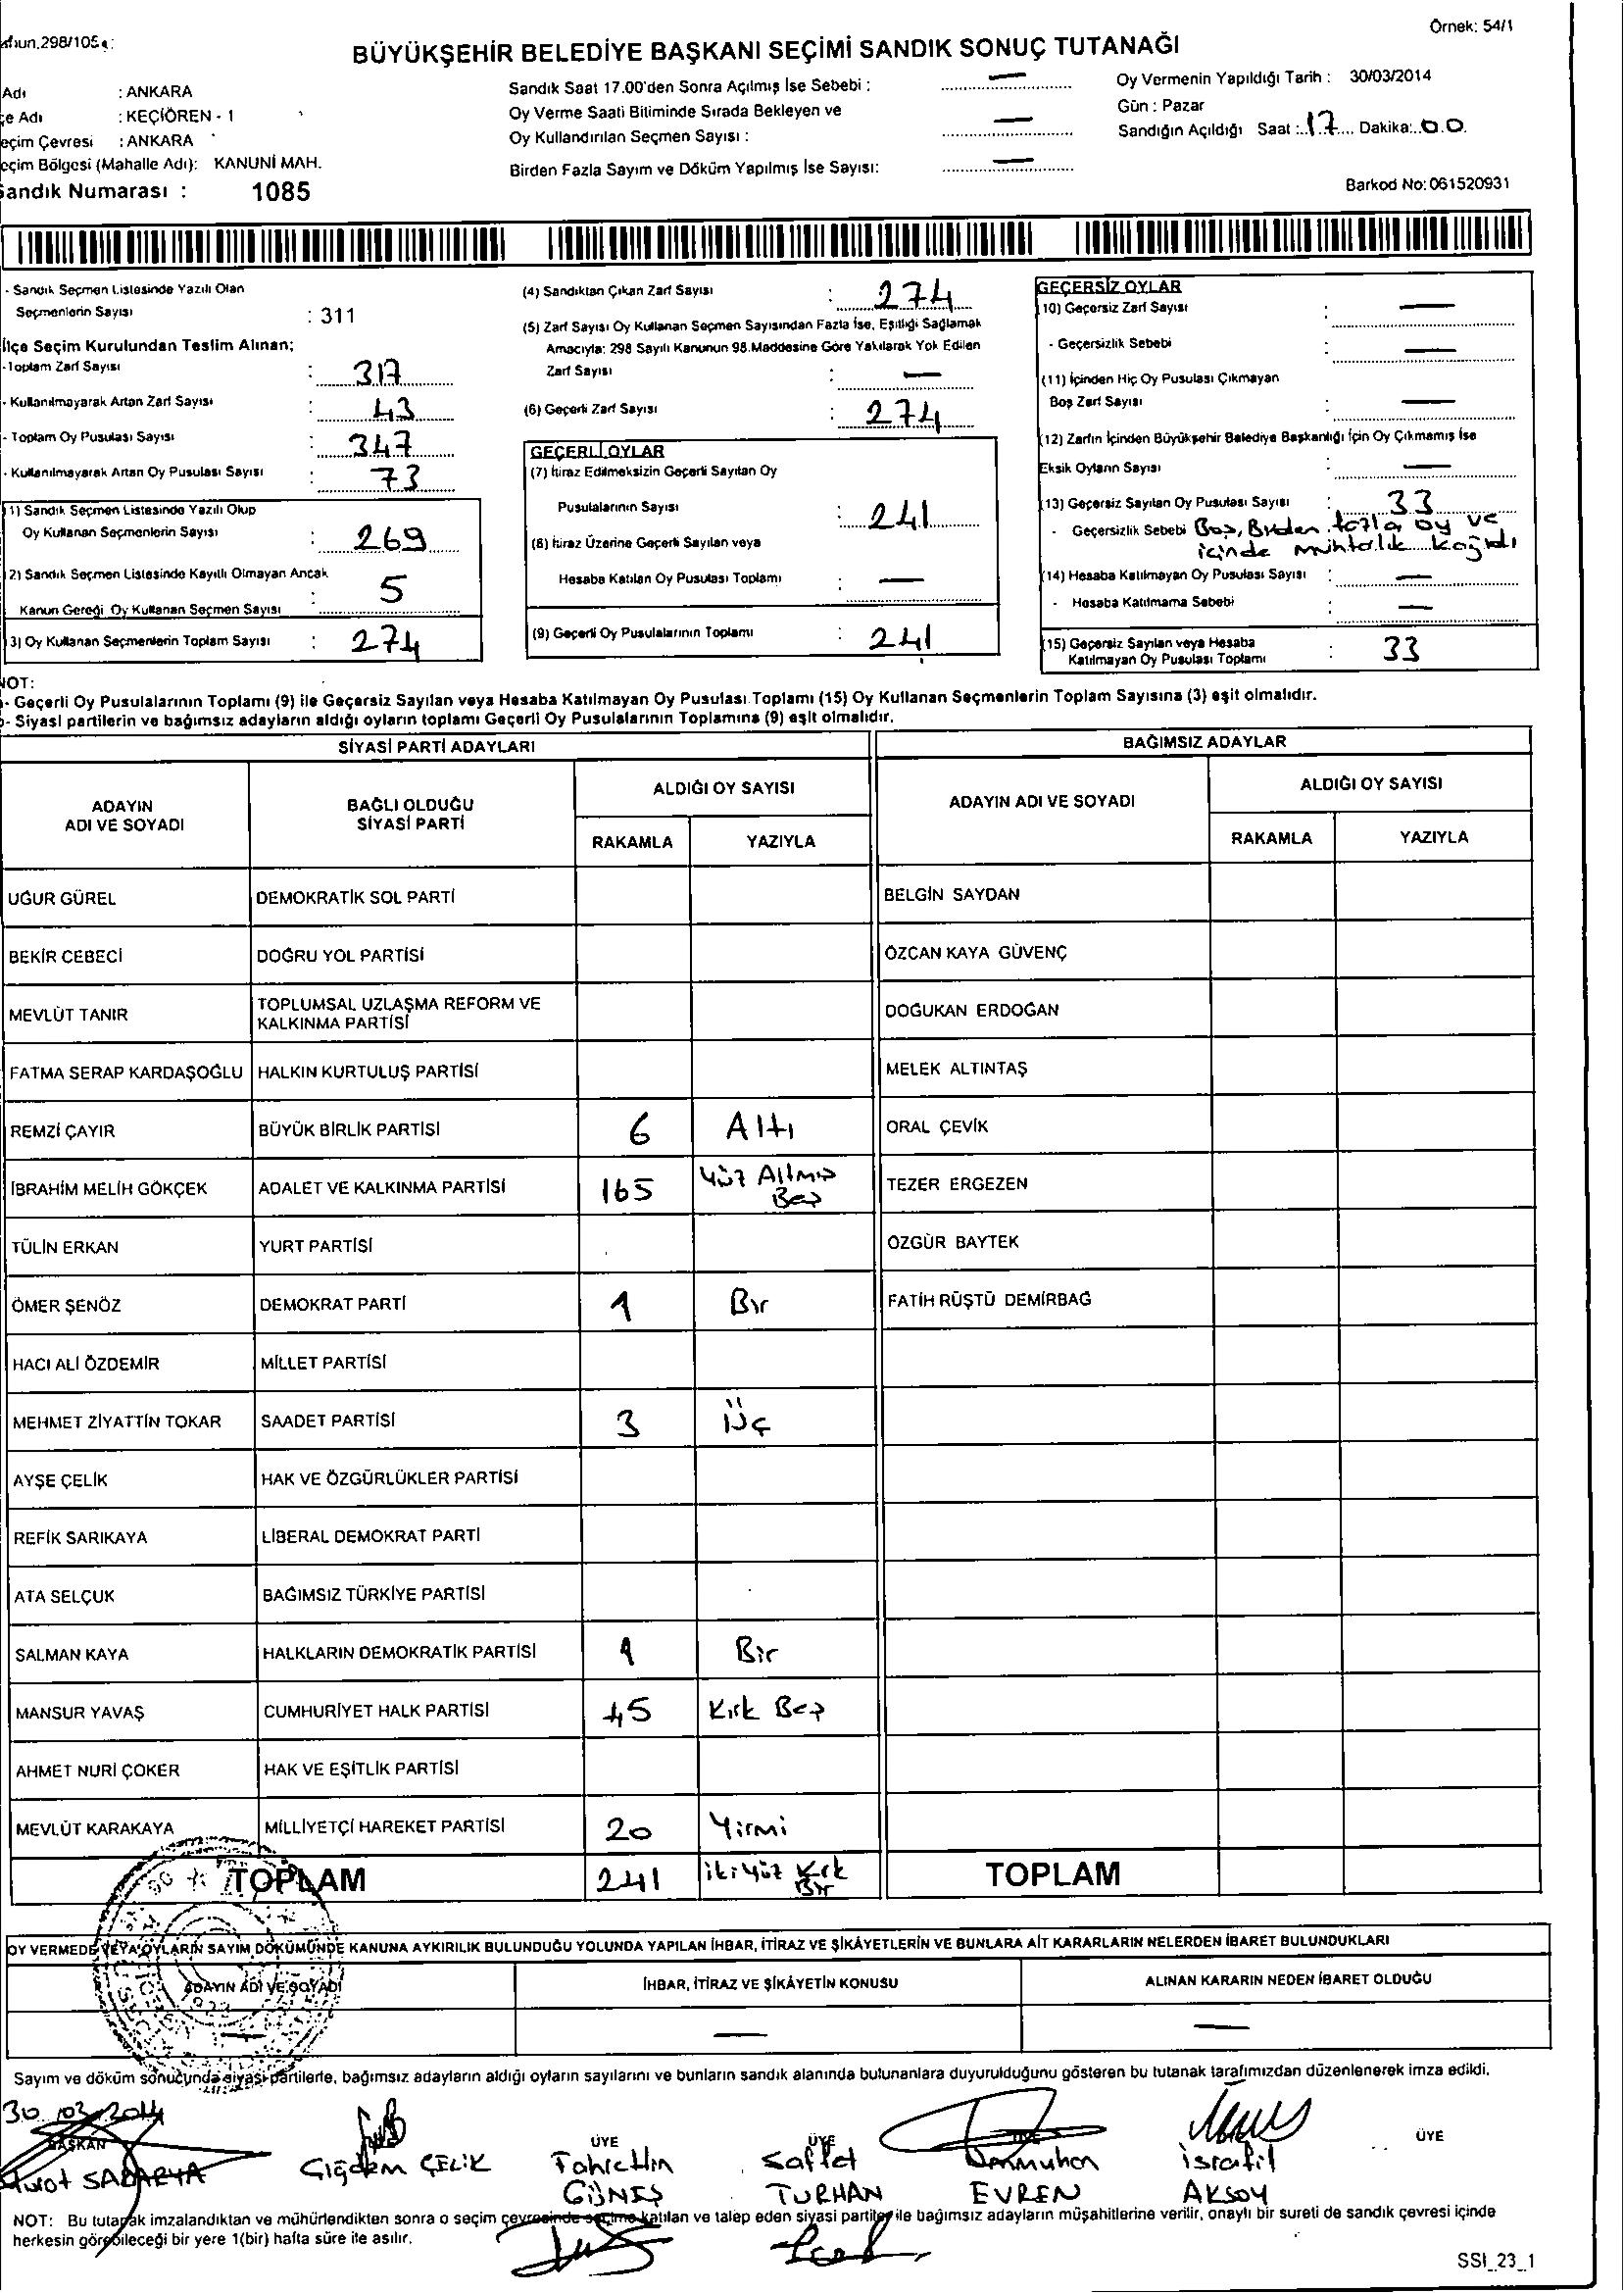 Örnek: 54/1
BÜYÜKŞEHİR BELEDİYE BAŞKANI SEÇİMİ SANDIK SONUÇ TUTANAĞI
Adı : ANKARA
çe Adı : KEÇİÖREN - 1
eçim Çevresi : ANKARA
eçim Bölgesi (Mahalle Adı): KANUNİ MAH.
Sandık Numarası : 1085
Sandık Saat 17.00'den Sonra Açılmış İse Sebebi : —
Oy Verme Saati Bitiminde Sırada Bekleyen ve
Oy Kullandırılan Seçmen Sayısı : —
Birden Fazla Sayım ve Döküm Yapılmış İse Sayısı: —
Oy Vermenin Yapıldığı Tarih : 30/03/2014
Gün : Pazar
Sandığın Açıldığı Saat : 17 Dakika: 00
Barkod No: 061520931
- Sandık Seçmen Listesinde Yazılı Olan
Seçmenlerin Sayısı : 311
İlçe Seçim Kurulundan Teslim Alınan;
-Toplam Zarf Sayısı : 317
- Kullanılmayarak Artan Zarf Sayısı : 43
- Toplam Oy Pusulası Sayısı : 347
- Kullanılmayarak Artan Oy Pusulası Sayısı : 73
1) Sandık Seçmen Listesinde Yazılı Olup
Oy Kullanan Seçmenlerin Sayısı : 269
2) Sandık Seçmen Listesinde Kayıtlı Olmayan Ancak
Kanun Gereği Oy Kullanan Seçmen Sayısı : 5
3) Oy Kullanan Seçmenlerin Toplam Sayısı : 274
(4) Sandıktan Çıkan Zarf Sayısı : 274
(5) Zarf Sayısı Oy Kullanan Seçmen Sayısından Fazla İse, Eşitliği Sağlamak
Amacıyla: 298 Sayılı Kanunun 98.Maddesine Göre Yakılarak Yok Edilen
Zarf Sayısı : —
(6) Geçerli Zarf Sayısı : 274
GEÇERLİ OYLAR
(7) İtiraz Edilmeksizin Geçerli Sayılan Oy
Pusulalarının Sayısı : 241
(8) İtiraz Üzerine Geçerli Sayılan veya
Hesaba Katılan Oy Pusulası Toplamı : —
(9) Geçerli Oy Pusulalarının Toplamı : 241
GEÇERSİZ OYLAR
10) Geçersiz Zarf Sayısı : —
- Geçersizlik Sebebi : —
(11) İçinden Hiç Oy Pusulası Çıkmayan
Boş Zarf Sayısı : —
(12) Zarfın İçinden Büyükşehir Belediye Başkanlığı İçin Oy Çıkmamış İse
Eksik Oyların Sayısı : —
(13) Geçersiz Sayılan Oy Pusulası Sayısı : 33
- Geçersizlik Sebebi Boş, Birden fazla oy ve
içinde muhtarlık kağıdı
(14) Hesaba Katılmayan Oy Pusulası Sayısı : —
- Hesaba Katılmama Sebebi : —
(15) Geçersiz Sayılan veya Hesaba
Katılmayan Oy Pusulası Toplamı : 33
NOT:
- Geçerli Oy Pusulalarının Toplamı (9) ile Geçersiz Sayılan veya Hesaba Katılmayan Oy Pusulası Toplamı (15) Oy Kullanan Seçmenlerin Toplam Sayısına (3) eşit olmalıdır.
- Siyasi partilerin ve bağımsız adayların aldığı oyların toplamı Geçerli Oy Pusulalarının Toplamına (9) eşit olmalıdır.
SİYASİ PARTİ ADAYLARI BAĞIMSIZ ADAYLAR
ADAYIN ADI VE SOYADI BAĞLI OLDUĞU SİYASİ PARTİ ALDIĞI OY SAYISI ADAYIN ADI VE SOYADI ALDIĞI OY SAYISI
RAKAMLA YAZIYLA RAKAMLA YAZIYLA
UĞUR GÜREL DEMOKRATİK SOL PARTİ BELGİN SAYDAN
BEKİR CEBECİ DOĞRU YOL PARTİSİ ÖZCAN KAYA GÜVENÇ
MEVLÜT TANIR TOPLUMSAL UZLAŞMA REFORM VE KALKINMA PARTİSİ DOĞUKAN ERDOĞAN
FATMA SERAP KARDAŞOĞLU HALKIN KURTULUŞ PARTİSİ MELEK ALTINTAŞ
REMZİ ÇAYIR BÜYÜK BİRLİK PARTİSİ 6 Altı ORAL ÇEVİK
İBRAHİM MELİH GÖKÇEK ADALET VE KALKINMA PARTİSİ 165 Yüz Altmış Beş TEZER ERGEZEN
TÜLİN ERKAN YURT PARTİSİ ÖZGÜR BAYTEK
ÖMER ŞENÖZ DEMOKRAT PARTİ 1 Bir FATİH RÜŞTÜ DEMİRBAĞ
HACI ALİ ÖZDEMİR MİLLET PARTİSİ
MEHMET ZİYATTİN TOKAR SAADET PARTİSİ 3 Üç
AYŞE ÇELİK HAK VE ÖZGÜRLÜKLER PARTİSİ
REFİK SARIKAYA LİBERAL DEMOKRAT PARTİ
ATA SELÇUK BAĞIMSIZ TÜRKİYE PARTİSİ
SALMAN KAYA HALKLARIN DEMOKRATİK PARTİSİ 1 Bir
MANSUR YAVAŞ CUMHURİYET HALK PARTİSİ 45 Kırk Beş
AHMET NURİ ÇOKER HAK VE EŞİTLİK PARTİSİ
MEVLÜT KARAKAYA MİLLİYETÇİ HAREKET PARTİSİ 20 Yirmi
TOPLAM 241 iki yüz Kırk Bir TOPLAM
OY VERMEDE VEYA OYLARIN SAYIM DÖKÜMÜNDE KANUNA AYKIRILIK BULUNDUĞU YOLUNDA YAPILAN İHBAR, İTİRAZ VE ŞİKÂYETLERİN VE BUNLARA AİT KARARLARIN NELERDEN İBARET BULUNDUKLARI
ADAYIN ADI VE SOYADI İHBAR, İTİRAZ VE ŞİKÂYETİN KONUSU ALINAN KARARIN NEDEN İBARET OLDUĞU
— — —
Sayım ve döküm sonucunda siyasi partilerle, bağımsız adayların aldığı oyların sayılarını ve bunların sandık alanında bulunanlara duyurulduğunu gösteren bu tutanak tarafımızdan düzenlenerek imza edildi.
30.03.2014
BAŞKAN ÜYE ÜYE ÜYE ÜYE
Çiğdem ÇELİK Fahrettin Saffet israfil
GÜNEŞ TURHAN EVREN AKSOY
NOT: Bu tutanak imzalandıktan ve mühürlendikten sonra o seçim çevresinde seçime katılan ve talep eden siyasi partiler ile bağımsız adayların müşahitlerine verilir, onaylı bir sureti de sandık çevresi içinde
herkesin görebileceği bir yere 1(bir) hafta süre ile asılır.
SSI_23_1